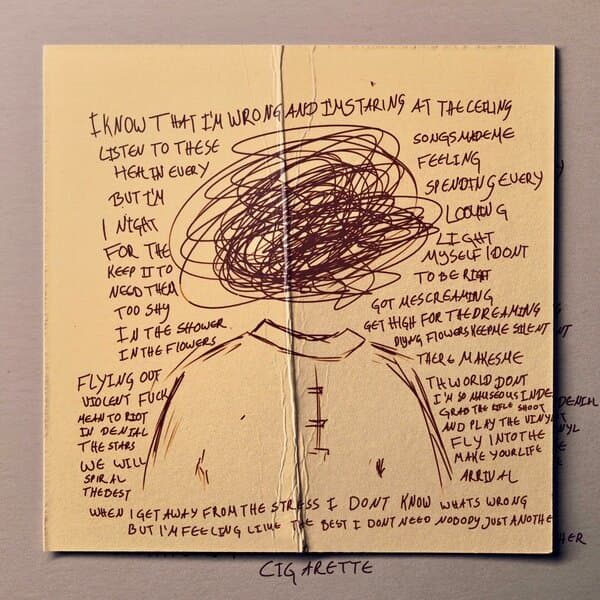 I KNOW THAT I'M WRONG AND I'M STARING AT THE CEILING
LISTEN TO THESE SONGS MADE ME
HEAL IN EVERY FEELING
BUT I'M SPENDING EVERY
I NIGHT LOOKING
FOR THE LIGHT
KEEP IT TO MYSELF I DONT
NEED THEM TO BE RIGHT
TOO SHY GOT ME SCREAMING
IN THE SHOWER GET HIGH FOR THE DREAMING
IN THE FLOWERS DYING FLOWERS KEEP ME SILENT
FLYING OUT THERE MAKES ME
VIOLENT FUCK TH WORLD DONT
MEAN TO RIOT I'M SO NAUSEOUS IN DENIAL
IN DENIAL GRAB THE RIFLE SHOOT
THE STARS AND PLAY THE VINYL
WE WILL FLY INTO THE
SPIRAL MAKE YOUR LIFE
THE BEST ARRIVAL
WHEN I GET AWAY FROM THE STRESS I DONT KNOW WHATS WRONG
BUT I'M FEELING LIKE THE BEST I DONT NEED NOBODY JUST ANOTHER
CIGARETTE